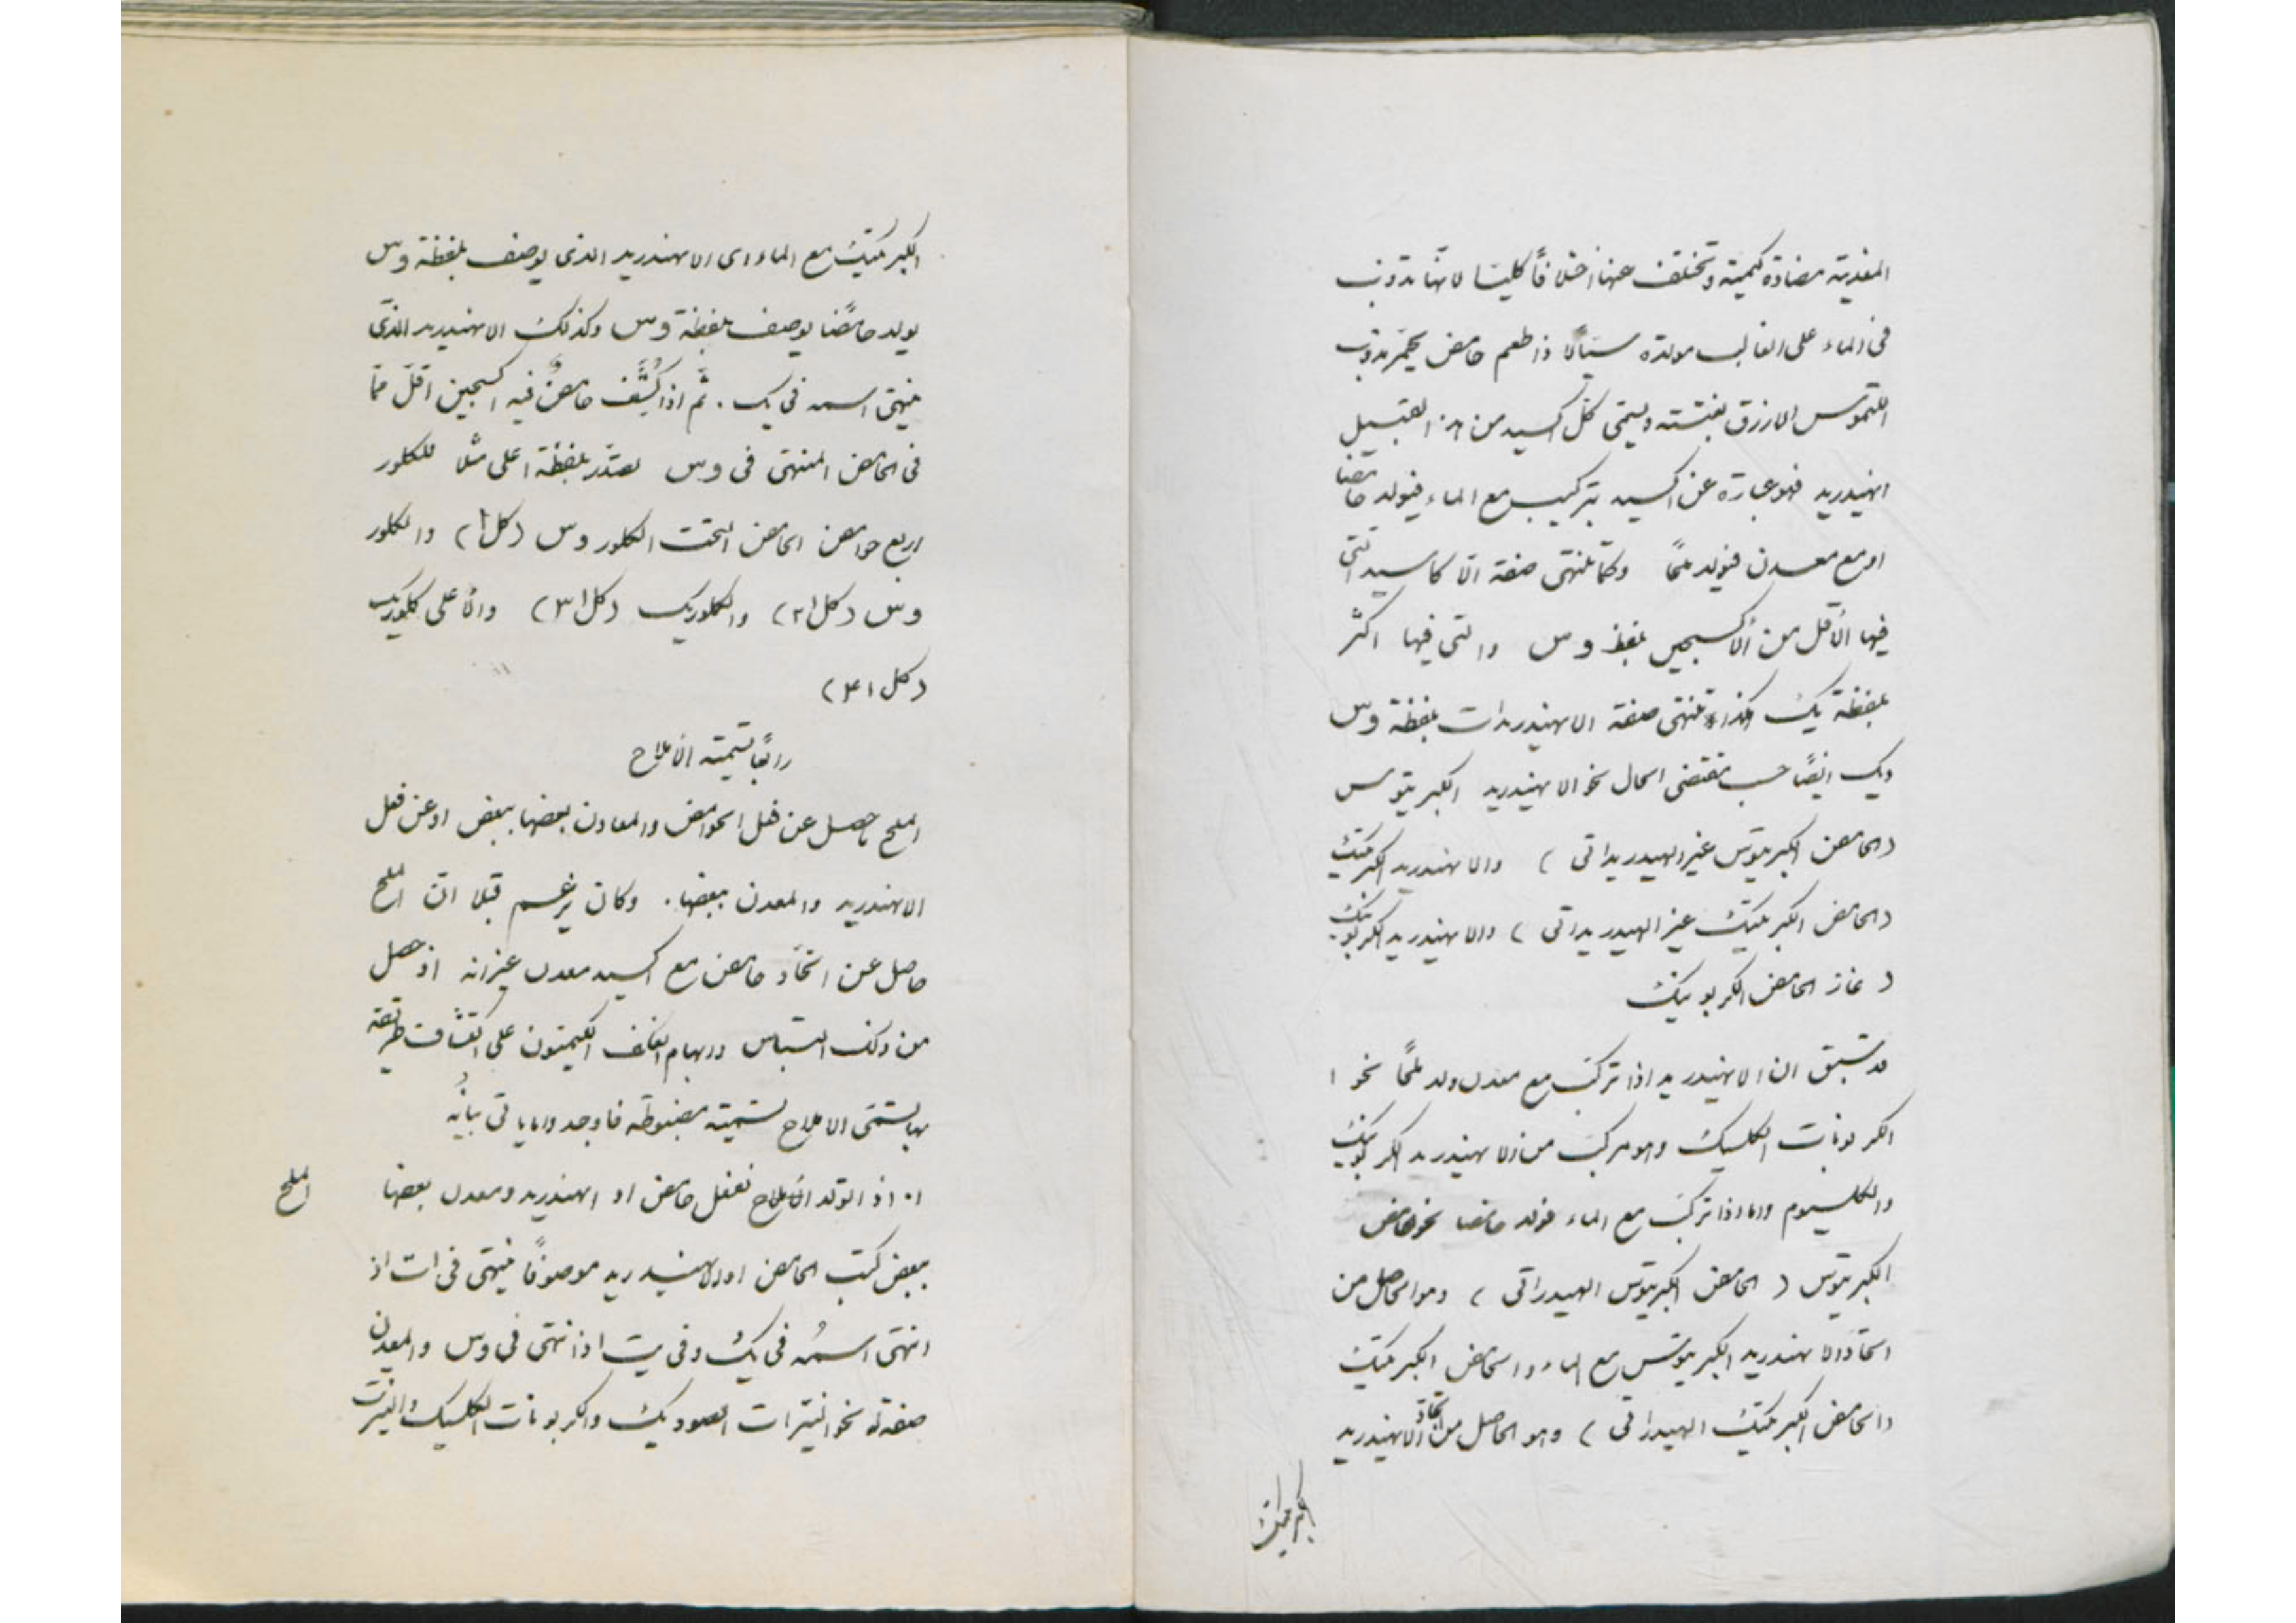 المعدنية مضادة كيمية وتختلف عنها اختلافًا كليًا لانها تذوب
فى الماء على الغالب مولدة سيالًا ذا طعم حامض يحمّر بذوب
اللتموس الازرق بغتته ويسمى كل اكسيد من هذا القبيل
انهيدريد فهو عبارة عن اكسيد يتركب مع الماء فيولد حامضا
او مع معدن فيولد ملحًا وكما تنتهى صفة الاكاسيد التى
فيها الأقل من الأكسجين بلفظ وس والتى فيها اكثر
بلفظة يك هكذا تنتهى صفة الانهيدريدات بلفظة وس
ويك ايضًا حسب مقتضى الحال نحو الانهيدريد الكبريتوس
(الحامض الكبريتوس غير الهيدريداتى) والانهيدريد الكبريتيك
(الحامض الكبريتيك غير الهيدريداتى) والانهيدريد الكربونيك
(غاز الحامض الكربونيك
قد سبق ان الانهيدريد اذا تركب مع معدن ولد ملحًا نحو ا
الكربونات الكلسيك وهو مركب من الانهيدريد الكربونيك
والكلسيوم واما اذا تركب مع الماء فولد حامضا نحو الحامض
الكبريتوس (الحامض الكبريتوس الهيدراتى) وهو الحاصل من
اتحاد الانهيدريد الكبريتوس مع الماء والحامض الكبريتيك
(الحامض الكبريتيك الهيدراتى) وهو الحاصل من اتحاد الانهيدريد
الكبريتيك
الكبريتيك مع الماء اى الانهيدريد الذى يوصف بلفظة وس
يولد حامضًا يوصف بلفظة وس وكذلك الانهيدريد الذى
ينتهى اسمه فى يك . ثم اذا كُشف حامضٌ فيه اكسجين اقل مما
فى الحامض المنتهى فى وس تصدّر بلفظة اعلى مثلا للكلور
اربع حوامض الحامض التحت الكلوروس (كل١) والكلور
وس (كل١٢) والكلوريك (كل١٣) والأعلى كلوريك
(كل١٤)
رابعًا تسمية الاملاح
الملح يحصل عن فعل الحوامض والمعادن بعضها ببعض او عن فعل
الانهيدريد والمعدن ببعضها . وكان يزعم قبلا ان الملح
حاصل عن اتحاد حامض مع اكسيد معدن غير انه اذ حصل
من ذلك التباس وابهام الكيميون على اكتشاف طريقة
بها تسمى الاملاح تسمية مضبوطة فاوجدوا ما ياتى بيانُه
١. اذ التولد الاملاح بفعل حامض او انهيدريد ومعدن بعضها
الملح
ببعض كتب الحامض او الانهيدريد موصوفًا فينتهى فى ات اذ
انتهى اسمُه فى يك وفى يت اذا انتهى فى وس والمعدن
صفة له نحو النيترات الصوديك والكربونات الكلسيك والنيترت